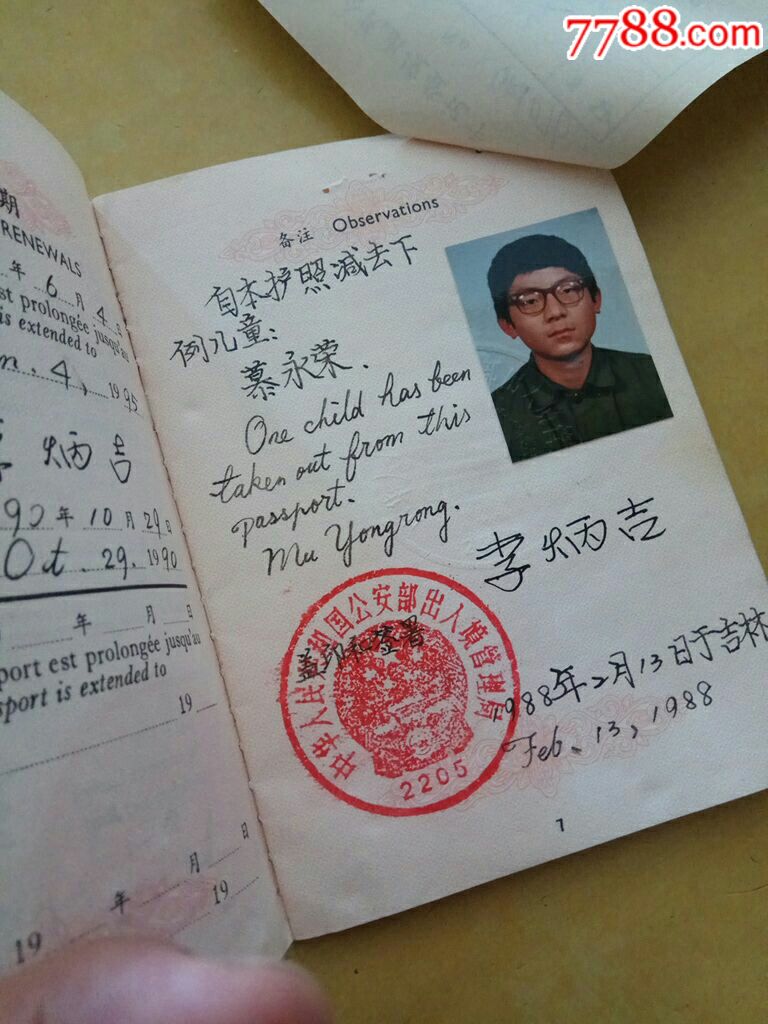 7788.com
期
RENEWALS
年 6 月 4 日
est prolongée jusqu'au
is extended to
n. 4, 1995
炳吉
90 年 10 月 29 日
Oct. 29. 1990
年 月 日
port est prolongée jusqu'au
sport is extended to
19
年 月 日
19 19
备注 Observations
自本护照减去下
例儿童:
慕永荣.
One child has been
taken out from this
passport.
Mu Yongrong.
李炳吉
中华人民共和国公安部出入境管理局
盖印和签署
2205
1988年2月13日于吉林
Feb. 13, 1988
7